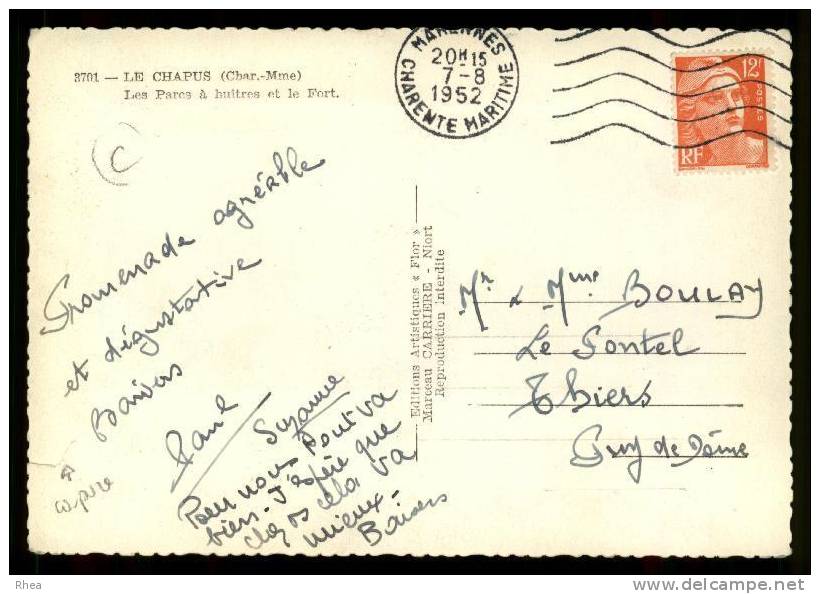 3701 — LE CHAPUS (Char.-Mme)
Les Parcs à huîtres et le Fort.
MARENNES
20H15
7-8
1952
CHARENTE MARITIME
12F
POSTES
RF
C
Promenade agréable
et dégustative
Baisers
Paul
Suzanne
Pour nous tout va
bien - J'espère que
chez vs cela va
mieux -
Baisers
Editions Artistiques « Flor »
Marceau CARRIERE - Niort
Reproduction Interdite
Mr & Mme BOULAY
Le Pontel
Thiers
Puy de Dôme
Rhea
www.delcampe.net